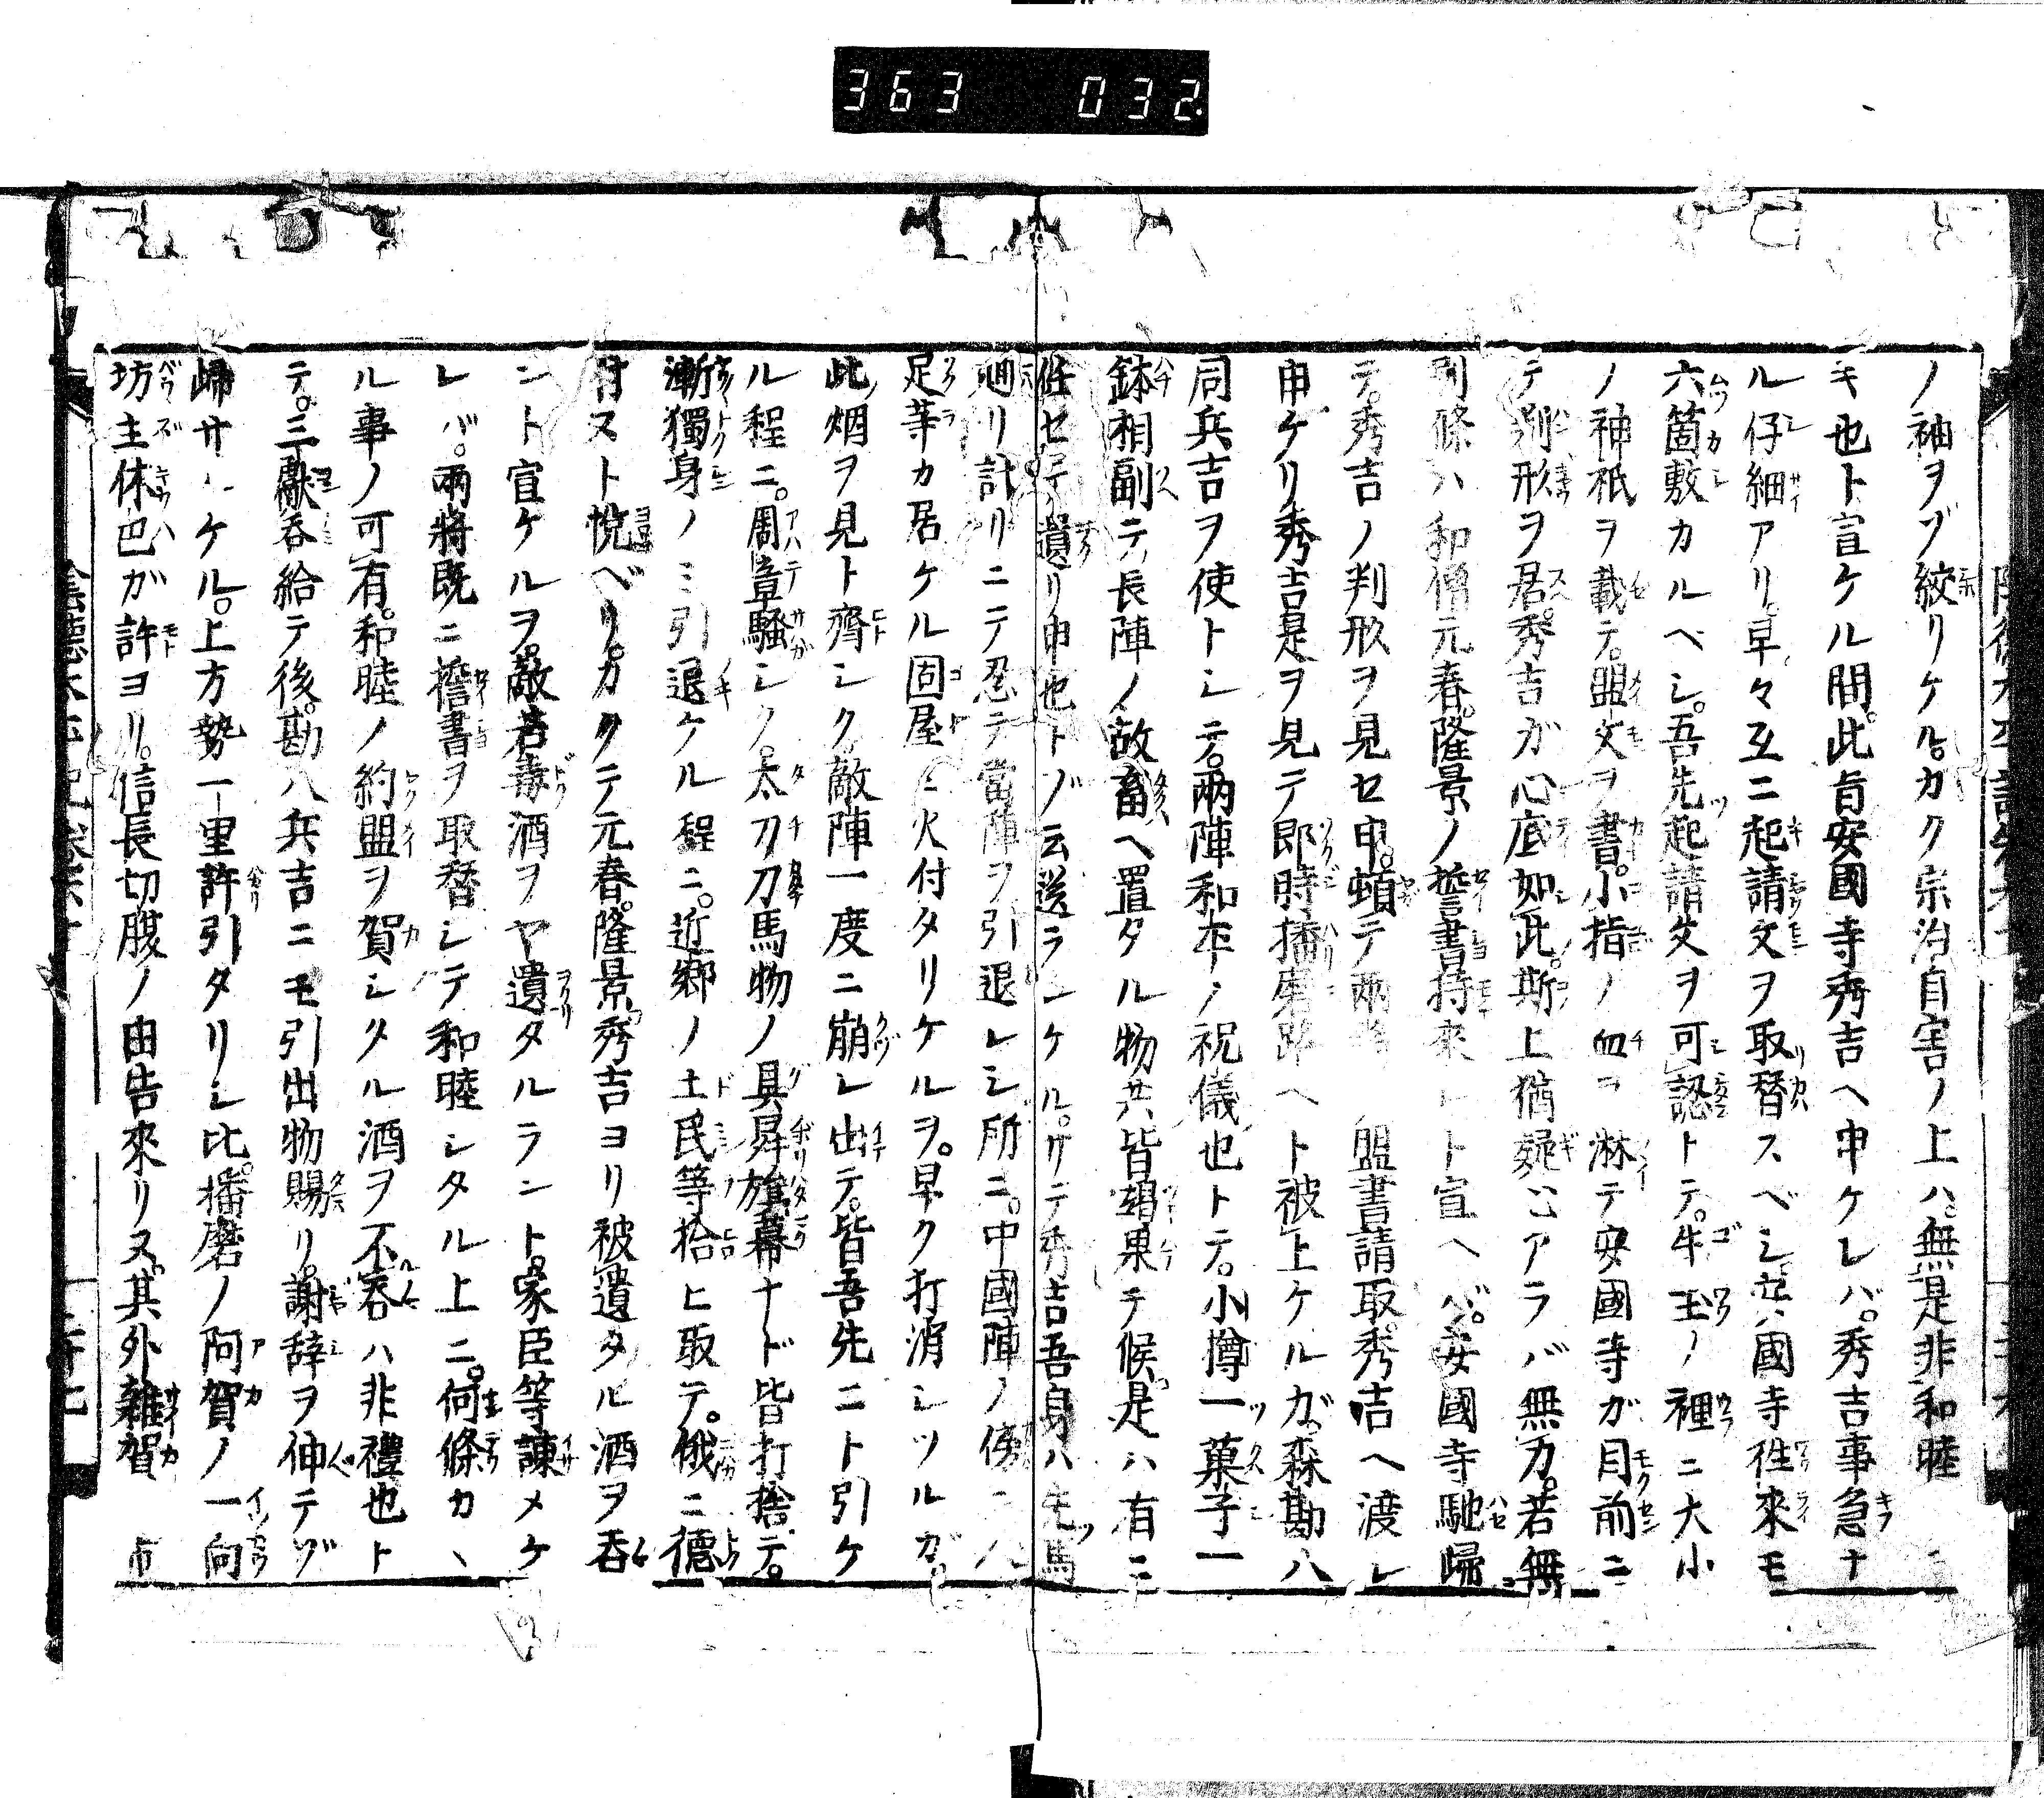 363 032
ノ袖ヲゾ絞リケル。カク宗治自害ノ上ハ。無是非和睦ニ
キ也ト宣ケル間。此旨安國寺秀吉ヘ申ケレバ。秀吉事急ナ
ル仔細アリ。早々互ニ起請文ヲ取替スベシ。安國寺徃來モ
六箇敷カルヘシ。吾先起請文ヲ可認トテ。牛王ノ裡ニ大小
ノ神祇ヲ載テ。盟文ヲ書。小指ノ血ヲ淋テ安國寺ガ目前ニ
テ判形ヲ居ス。秀吉ガ心底如此。斯上猶疑ヒアラバ無力。若無
別條ハ和僧元春。隆景ノ誓書持來レト宣ヘバ。安國寺馳歸
テ。秀吉ノ判形ヲ見セ申。頓テ兩將 盟書請取。秀吉ヘ渡レ
申ケリ秀吉是ヲ見テ即時播磨路ヘト被上ケルガ。森勘八
同兵吉ヲ使トシテ。兩陣和平ノ祝儀也トテ。小樽一ツ菓子一
鉢相副テ。長陣ノ故畜ヘ置タル物共皆竭果テ候。是ハ有ニ
任セテ遺リ申也トゾ云送ランケル。サテ秀吉吾身ハ先ツ馬
廻リ計リニテ忍テ當陣ヲ引退レシ所ニ。中國陣ノ傍ニ八
足等カ居ケル固屋ニ火付タリケルヲ。早ク打消シツルガ。
此烟ヲ見ト齊シク敵陣一度ニ崩レ出テ。皆吾先ニト引ケ
ル程ニ。周章騷シク。太刀刀馬物ノ具昇旗幕ナド皆打捨テ。
漸獨身ノミ引退ケル程ニ。近郷ノ土民等拾ヒ取テ。俄ニ德
付ヌト悅ベリ。カクテ元春。隆景。秀吉ヨリ被遺タル酒ヲ呑
ント宣ケルヲ。敵若毒酒ヲヤ遺タルラント。家臣等諫メケ
レバ。兩將既ニ誓書ヲ取替シテ和睦シタル上ニ。何條カヽ
ル事ノ可有。和睦ノ約盟ヲ賀シタル酒ヲ不呑ハ非禮也ト
テ。三獻呑給テ後。勘八兵吉ニモ引出物賜リ。謝辞ヲ伸テゾ
歸サレケル。上方勢一里許引タリシ比。播磨ノ阿賀ノ一向
坊主休巴ガ許ヨリ。信長切腹ノ由告來リヌ。其外雜賀 市